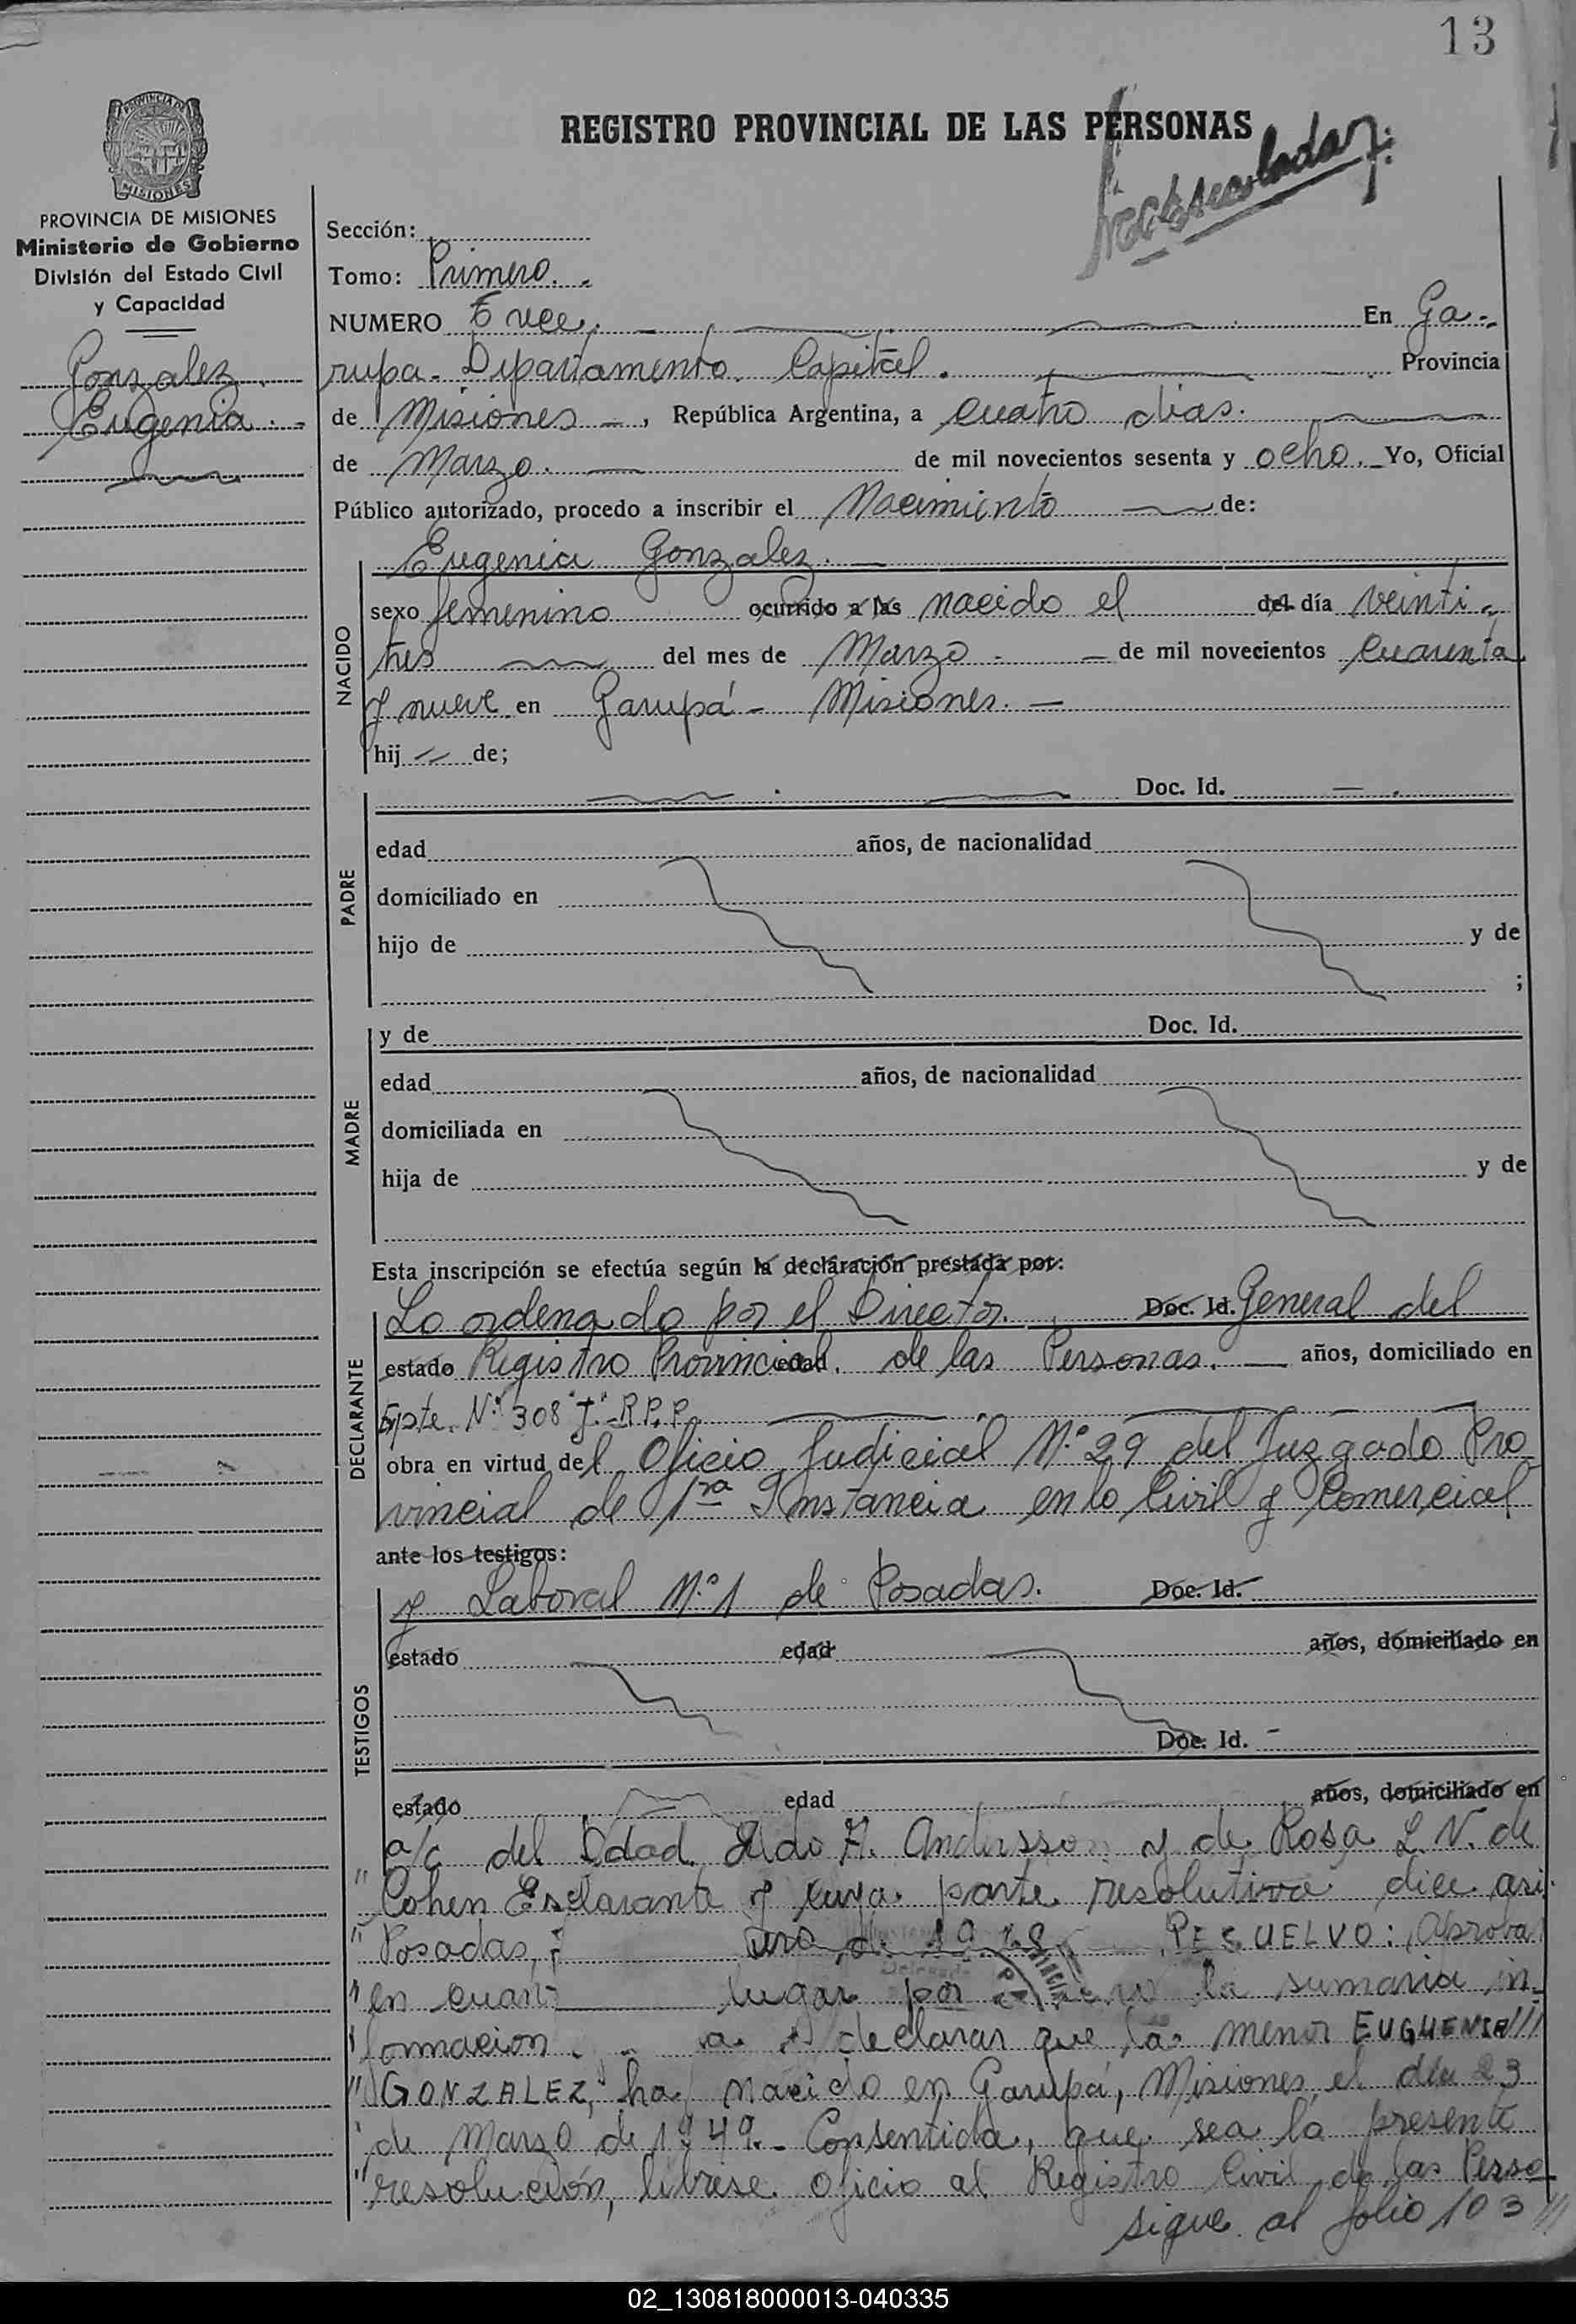 13
REGISTRO PROVINCIAL DE LAS PERSONAS
PROVINCIA DE
MISIONES
PROVINCIA DE MISIONES
Ministerio de Gobierno
División del Estado Civil
y Capacidad
Gonzalez
Eugenia. -
Sección:
Tomo: Primero. -
NUMERO Trece. — En Ga-
rupa- Departamento Capital. Provincia
de Misiones -, República Argentina, a cuatro dias.
de Marzo. — de mil novecientos sesenta y ocho. Yo, Oficial
Público autorizado, procedo a inscribir el Nacimiento de:
Eugenia Gonzalez. —
NACIDO
sexo femenino ocurrido a las nacido el del día veinti-
tres del mes de Marzo - — de mil novecientos cuarenta
y nueve en Garupá - Misiones. —
hij de;
PADRE
Doc. Id. — .
edad años, de nacionalidad
domiciliado en
hijo de y de
;
MADRE
y de Doc. Id.
edad años, de nacionalidad
domiciliada en
hija de y de
Esta inscripción se efectúa según la declaración prestada por:
DECLARANTE
Lo ordenado por el Director. Doc. Id. General del
estado Registro Provincial edad de las Personas. — años, domiciliado en
Expte. Nº 308 "J"- R.P.P.
obra en virtud del Oficio Judicial Nº 29 del Juzgado Pro
vincial de 1ra Instancia en lo Civil y Comercial
ante los testigos:
TESTIGOS
y Laboral Nº 1 de Posadas. Doc. Id.
estado edad años, domiciliado en
Doc. Id. -
estado edad años, domiciliado en
a/c del y de Rosa L. N. de
" Cohen y cuya parte resolutiva dice asi:
" Posadas, de RESUELVO: Aprobar
" en lugar por la sumaria in-
" formacion declarar que la menor EUGUENIA
" GONZALEZ, ha nacido en Garupá, Misiones, el día 23
" de Marzo de 1949.- Consentida, que sea la presente
" resolución, librese oficio al Registro Civil de las Perso
sigue al folio 103
02_130818000013-040335